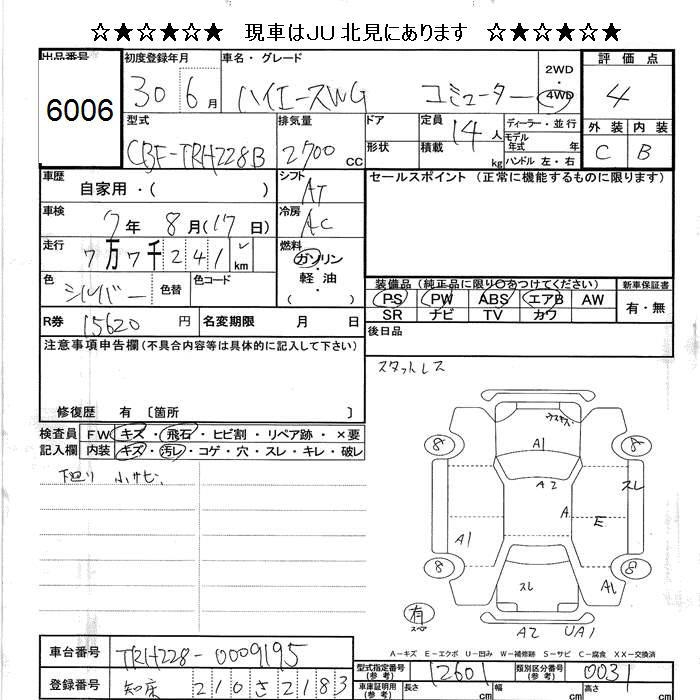 ☆★☆★☆★ 現車はJU北見にあります ☆★☆★☆★
出品番号 初度登録年月 車名・グレード 2WD ・ 4WD 評価点
6006 30 6月 ハイエースWG コミューター 4
型式 排気量 ドア 定員 14人 ディーラー・並行 外装 内装
CBF-TRH228B 2700cc 形状 積載 kg モデル年式 年 ハンドル 左・右 C B
車歴 自家用・( ) シフト AT セールスポイント (正常に機能するものに限ります)
車検 7年 8月(17日) 冷房 AC
走行 7万7千241km 燃料 ガソリン ・ 軽油 ・( )
色 シルバー 色替 色コード 装備品 (純正品に限り○をつけてください) 新車保証書
PS PW ABS エアB AW 有・無
SR ナビ TV カワ
R券 15620円 名変期限 月 日 後日品
注意事項申告欄(不具合内容等は具体的に記入して下さい) スタットレス
修復歴 有 〔箇所 〕
検査員 FW キズ・飛石・ヒビ割・リペア跡・×要
記入欄 内装 キズ・汚レ・コゲ・穴・スレ・キレ・破レ
下廻り 小サビ
A1
A2
8 8
スレ
A
E
A1
8 8
スレ
A1
有
スペ
A2 UA1
A-キズ E-エクボ U-凹み W-補修跡 S-サビ C-腐食 XX-交換済
車台番号 TRH228-0009195
型式指定番号(参考) 12601 類別区分番号(参考) 0031
登録番号 知床 210 さ 2183
車庫証明用(参考) 長さ cm 幅 cm 高さ cm